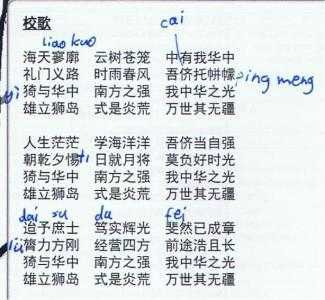 cai
校歌
liao kuo
海天寥廓 云树苍笼 中有我华中
礼门义路 时雨春风 吾侪托帡幪 ping meng
yi 猗与华中 南方之强 我中华之光
雄立狮岛 式是炎荒 万世其无疆
人生茫茫 学海洋洋 吾侪当自强
朝乾夕惕 ti 日就月将 莫负好时光
猗与华中 南方之强 我中华之光
雄立狮岛 式是炎荒 万世其无疆
dai su du fei
迨予庶士 笃实辉光 斐然已成章
lü 膂力方刚 经营四方 前途浩且长
猗与华中 南方之强 我中华之光
雄立狮岛 式是炎荒 万世其无疆